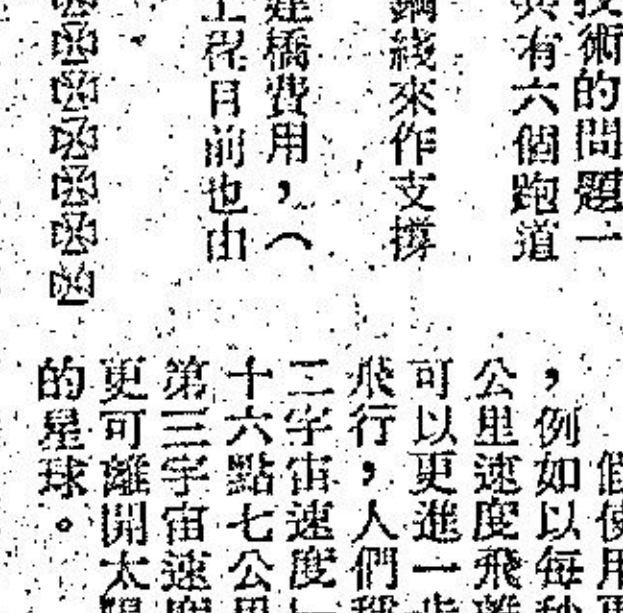 技術的問題一
共有六個跑道
鋼綫來作支撐
建橋費用，（
工程目前也由
使用更
，例如以每秒
公里速度飛離
可以更進一步
飛行，人們稱
二宇宙速度
十六點七公里
第三宇宙速度
更可離開太陽
的星球。